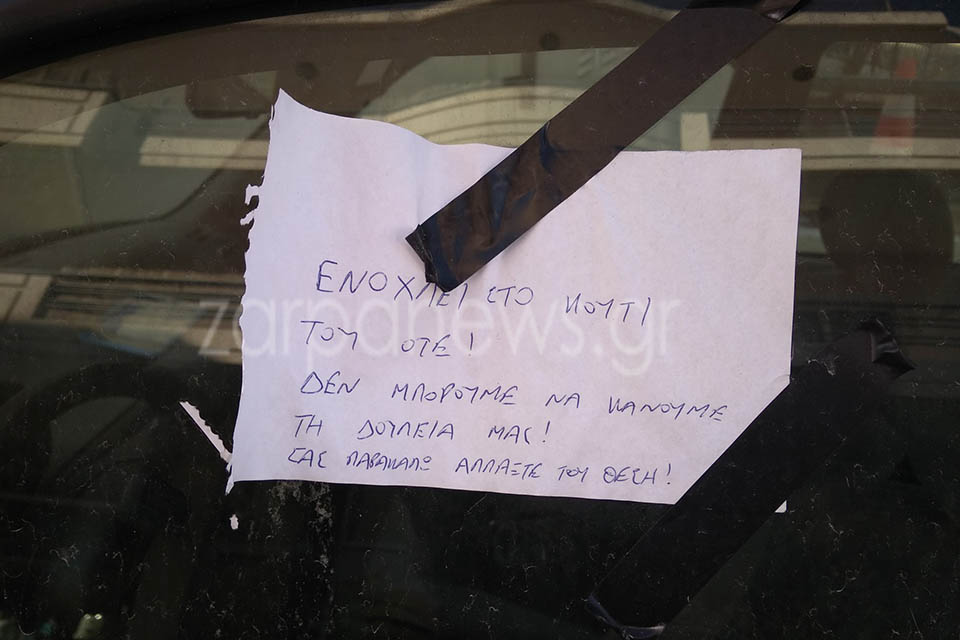 ΕΝΟΧΛΕΙ ΣΤΟ ΚΟΥΤΙ
ΤΟΥ ΟΤΕ!
zarpanews.gr
ΔΕΝ ΜΠΟΡΟΥΜΕ ΝΑ ΚΑΝΟΥΜΕ
ΤΗ ΔΟΥΛΕΙΑ ΜΑΣ!
ΣΑΣ ΠΑΡΑΚΑΛΩ ΑΛΛΑΞΤΕ ΤΟΥ ΘΕΣΗ!